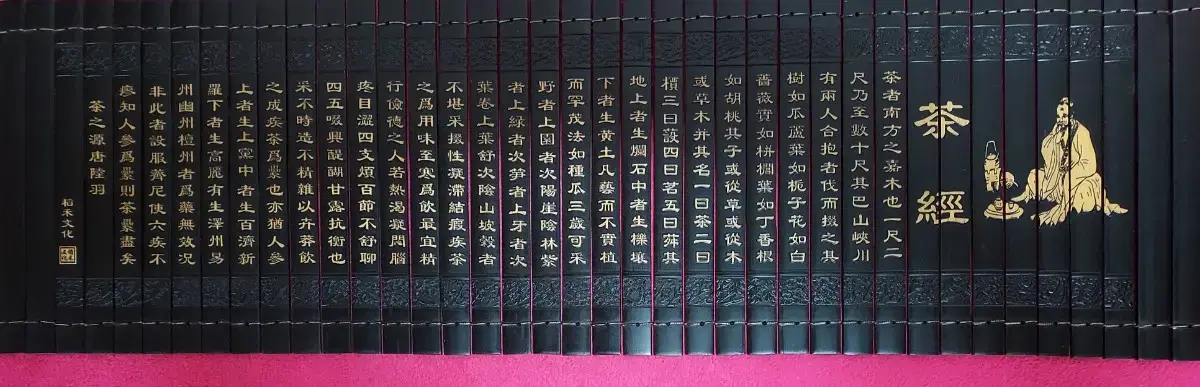 茶經
茶者南方之嘉木也一尺二
尺乃至數十尺其巴山峽川
有兩人合抱者伐而掇之其
樹如瓜蘆葉如梔子花如白
薔薇實如栟櫚葉如丁香根
如胡桃其子或從草或從木
或草木并其名一曰茶二曰
檟三曰蔎四曰茗五曰荈其
地上者生爛石中者生櫟壤
下者生黃土凡藝而不實植
而罕茂法如種瓜三歲可采
野者上園者次陽崖陰林紫
者上綠者次筍者上牙者次
葉卷上葉舒次陰山坡穀者
不堪采掇性凝滯結瘕疾茶
之爲用味至寒爲飲最宜精
行儉德之人若熱渴凝悶腦
疼目澀四支煩百節不舒聊
四五啜與醍醐甘露抗衡也
采不時造不精雜以卉莽飲
之成疾茶爲纍也亦猶人參
上者生上黨中者生百濟新
羅下者生高麗有生澤州易
州幽州檀州者爲藥無效況
非此者設服薺苨使六疾不
瘳知人參爲纍則茶纍盡矣
茶之源唐陸羽
稻禾文化